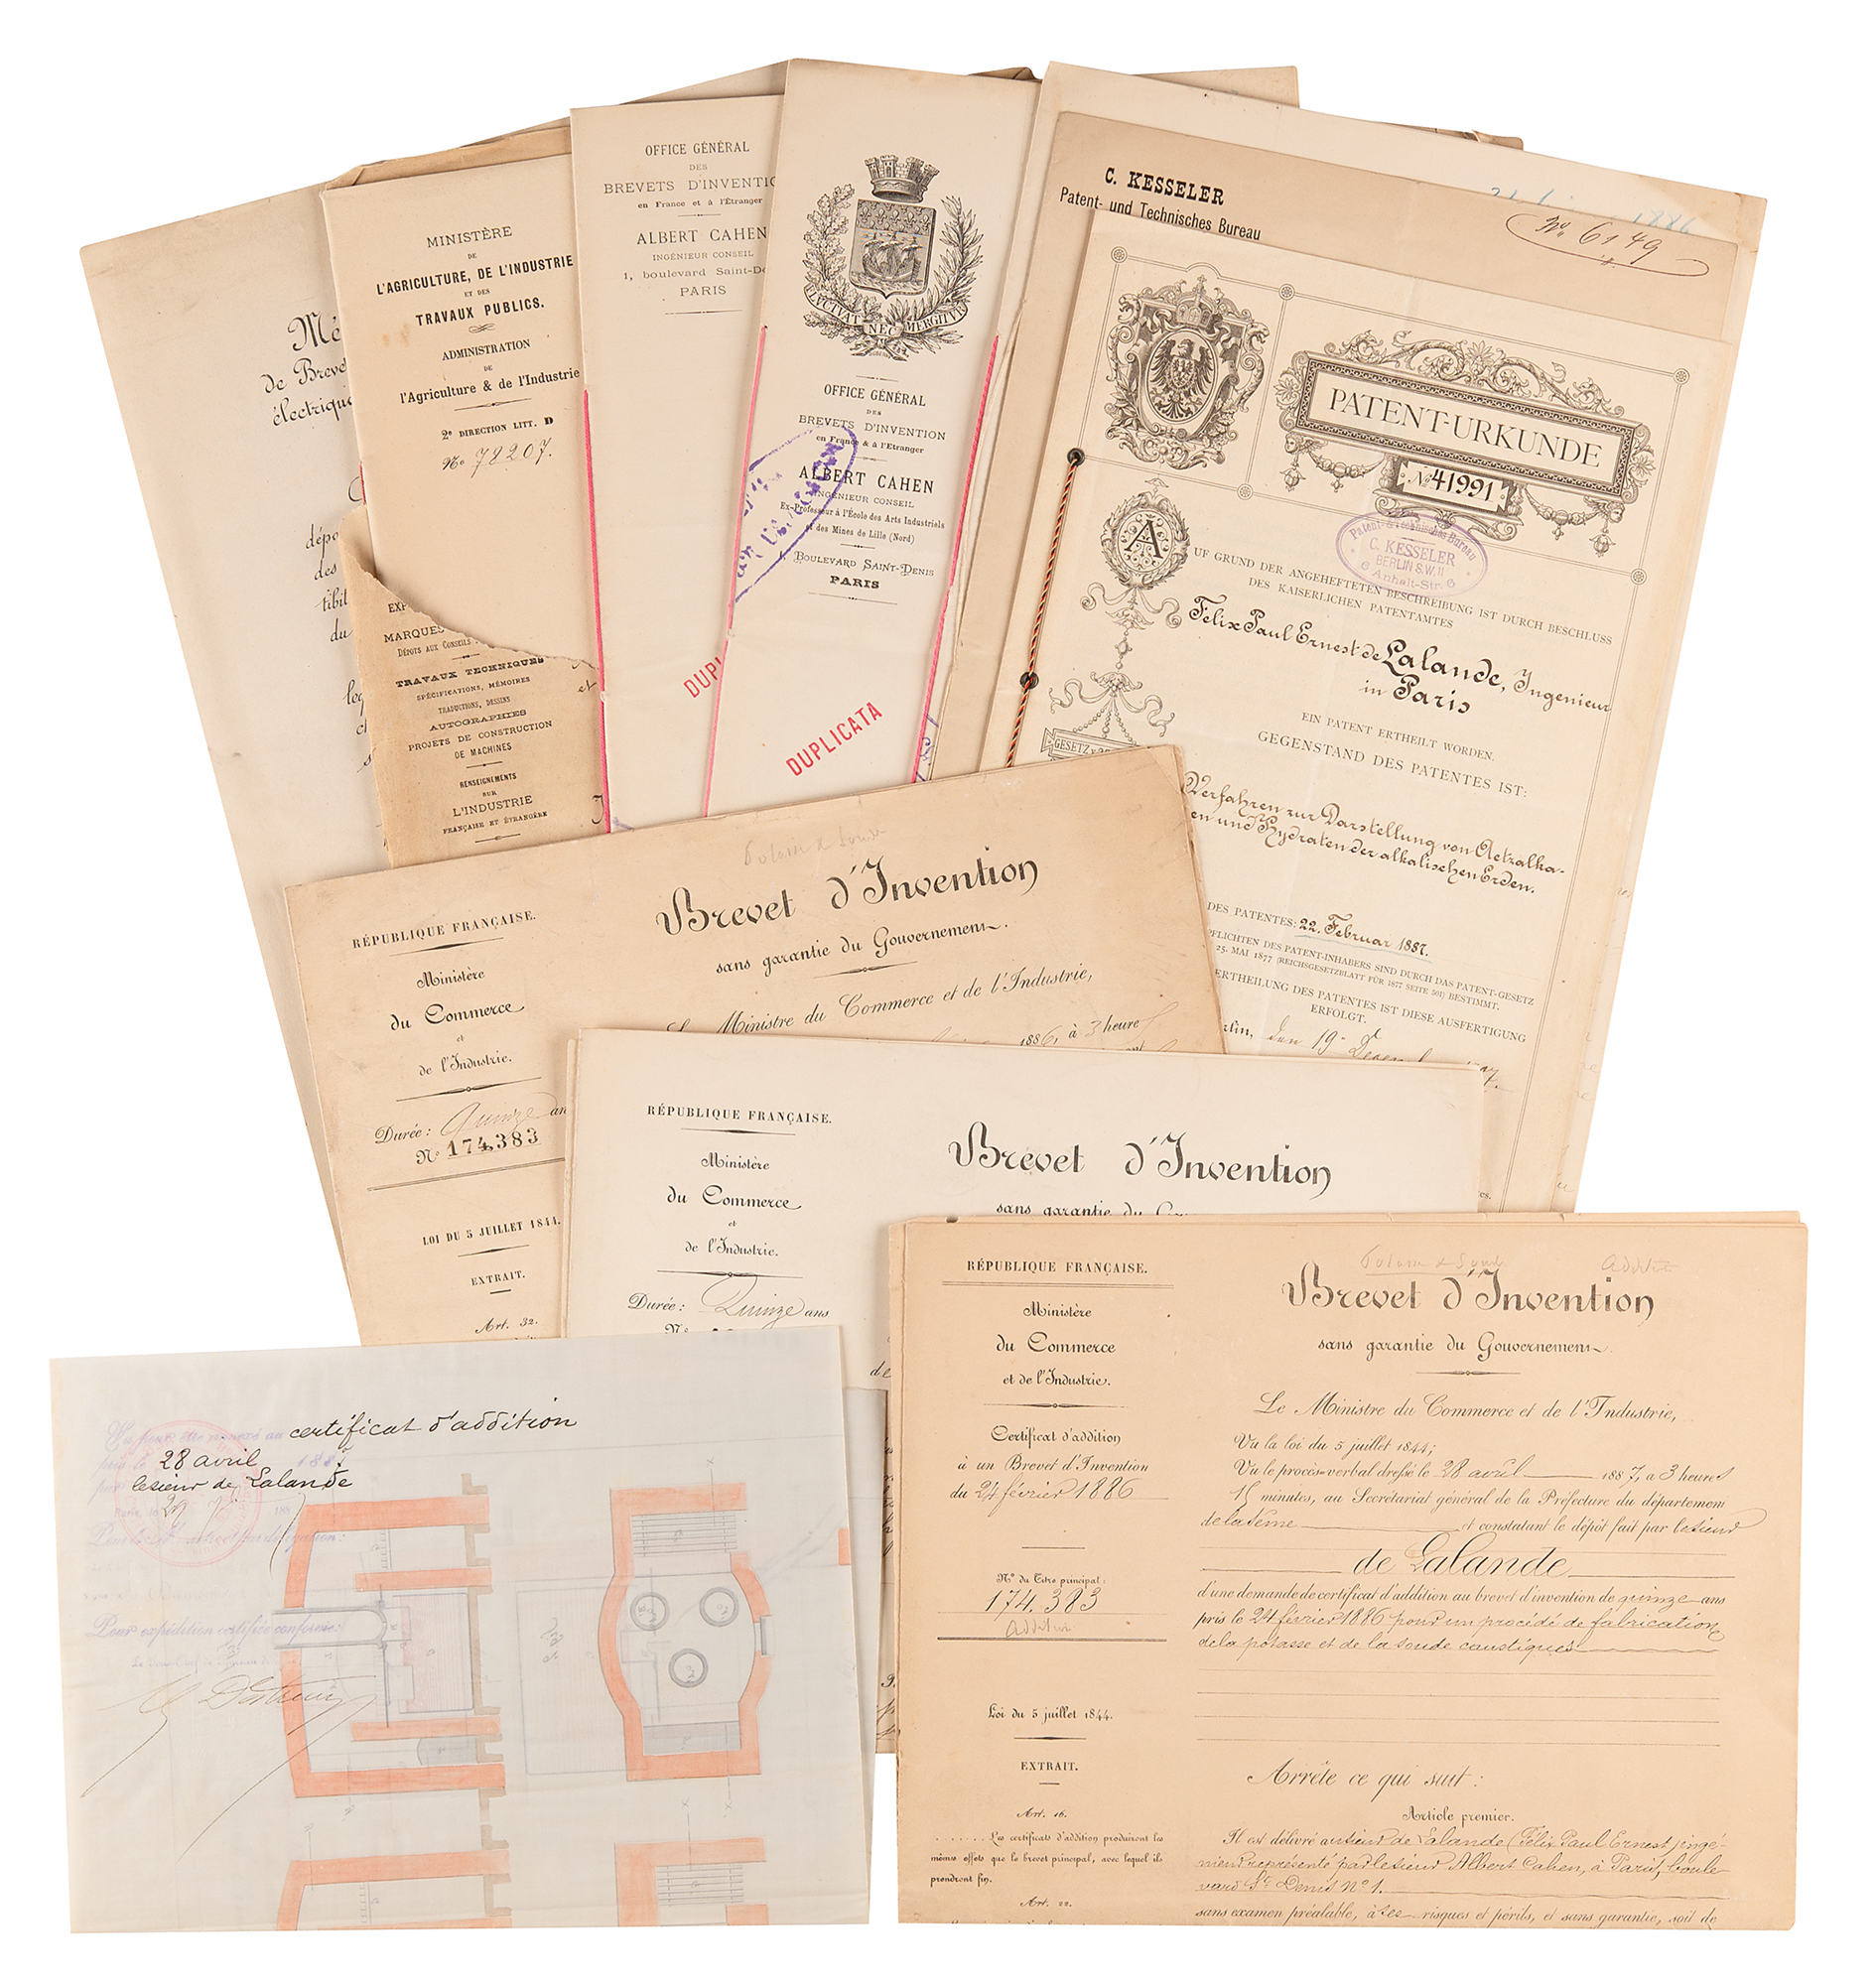 Mé
de Breve
électrique
dépo
des
tibil
du
MINISTÈRE
DE
L'AGRICULTURE, DE L'INDUSTRIE
ET DES
TRAVAUX PUBLICS.
ADMINISTRATION
DE
l'Agriculture & de l'Industrie
2e DIRECTION LITT. D
No 78207.
EXP
MARQUES
DÉPOTS AUX CONSEILS
TRAVAUX TECHNIQUES
SPÉCIFICATIONS, MÉMOIRES
TRADUCTIONS, DESSINS
AUTOGRAPHIES
PROJETS DE CONSTRUCTION
DE MACHINES
RENSEIGNEMENTS
SUR
L'INDUSTRIE
FRANÇAISE ET ÉTRANGÈRE
et
OFFICE GÉNÉRAL
DES
BREVETS D'INVENTIO
en France et à l'Étranger
ALBERT CAHEN
INGÉNIEUR CONSEIL
1, boulevard Saint-De
PARIS
DUPL
FLVCTVAT NEC MERGITVR
OFFICE GÉNÉRAL
DES
BREVETS D'INVENTION
en France & à l'Etranger
ALBERT CAHEN
INGÉNIEUR CONSEIL
Ex-Professeur à l'École des Arts Industriels
et des Mines de Lille (Nord)
1, BOULEVARD SAINT-DENIS
PARIS
DUPLICATA
1886
C. KESSELER
Patent- und Technisches Bureau
No 6149
PATENT-URKUNDE
No 41991
Patent- & Technisches Bureau
C. KESSELER
BERLIN S.W. 11
6 Anhalt-Str. 6
AUF GRUND DER ANGEHEFTETEN BESCHREIBUNG IST DURCH BESCHLUSS
DES KAISERLICHEN PATENTAMTES
Felix Paul Ernest de Lalande, Ingenieur
in Paris
EIN PATENT ERTHEILT WORDEN.
GEGENSTAND DES PATENTES IST:
GESETZ v. 25
Verfahren zur Darstellung von Aetzalka-
en und Hydraten der alkalischen Erden.
DES PATENTES: 22. Februar 1887.
PFLICHTEN DES PATENT-INHABERS SIND DURCH DAS PATENT-GESETZ
25. MAI 1877 (REICHSGESETZBLATT FÜR 1877 SEITE 501) BESTIMMT.
ERTHEILUNG DES PATENTES IST DIESE AUSFERTIGUNG
ERFOLGT.
rlin, den 19
Potasse & Soude
RÉPUBLIQUE FRANÇAISE.
Ministère
du Commerce
et
de l'Industrie.
Durée: Quinze an
No 174,383
LOI DU 5 JUILLET 1844.
EXTRAIT.
Art. 32.
Brevet d'Invention
sans garantie du Gouvernement.
Le Ministre du Commerce et de l'Industrie,
1886, à 3 heures
RÉPUBLIQUE FRANÇAISE.
Ministère
du Commerce
et
de l'Industrie.
Durée: Quinze ans
No
Brevet d'Invention
sans garantie du Gou
de
Vu pour être annexé au certificat d'addition
pris le 28 avril 1887
par le sieur de Lalande
Paris, le 29 188
Pour le et par délégation:
Pour expédition certifiée conforme:
RÉPUBLIQUE FRANÇAISE.
Ministère
du Commerce
et de l'Industrie.
Certificat d'addition
à un Brevet d'Invention
du 24 février 1886
No du Titre principal:
174.383
Addition
Loi du 5 juillet 1844.
EXTRAIT.
Art. 16.
...... Les certificats d'addition produiront les
mêmes effets que le brevet principal, avec lequel ils
prendront fin.
Art. 22.
Potasse & Soude
Addition
Brevet d'Invention
sans garantie du Gouvernement.
Le Ministre du Commerce et de l'Industrie,
Vu la loi du 5 juillet 1844;
Vu le procès-verbal dressé le 28 avril 1887, à 3 heures
15 minutes, au Secrétariat général de la Préfecture du département
de la Seine et constatant le dépôt fait par le sieur
de Lalande
d'une demande de certificat d'addition au brevet d'invention de quinze ans
pris le 24 février 1886 pour un procédé de fabrication
de la potasse et de la soude caustiques
Arrête ce qui suit:
Article premier.
Il est délivré au sieur de Lalande (Félix Paul Ernest) ingé-
nieur représenté par le sieur Albert Cahen, à Paris, boule
vard St Denis No 1.
sans examen préalable, à ses risques et périls, et sans garantie, soit de